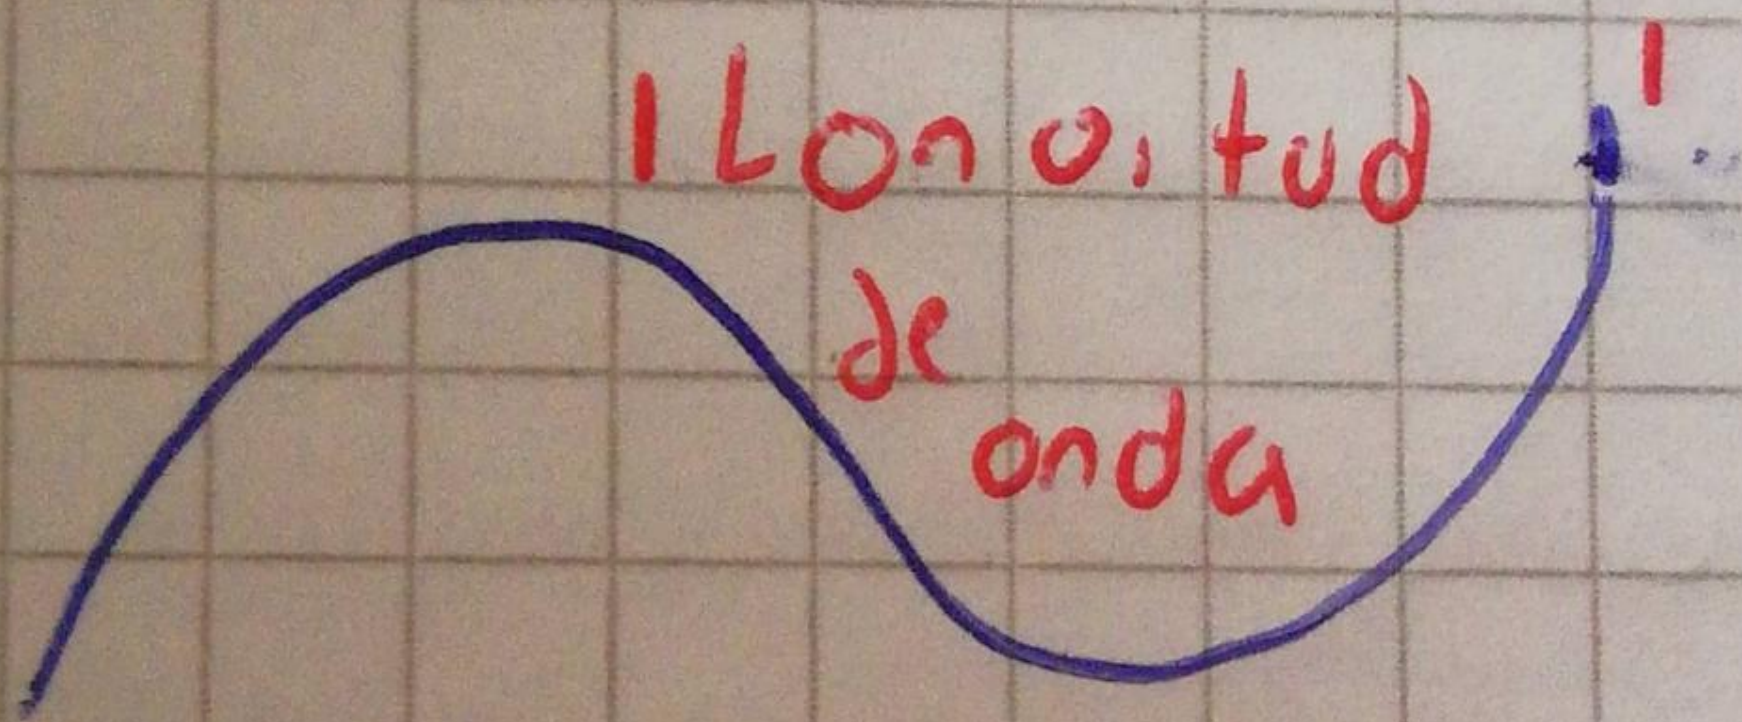 1 Lonoitud
de
onda